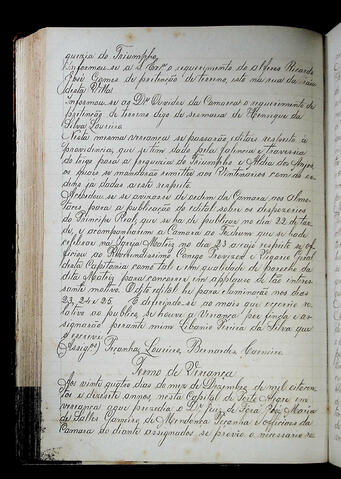 guezia do Triumpho.
Informou-se a S. Exª o requerimento do Alferes Ricardo
José Gomes de pretenção de terreno, sito na rua da
desta Villa.
Informou-se ao Dr. Ouvidor da Comarca o requerimento de
pretenção de terreno digo de sesmaria de Henrique da
Silva Loureiro.
Nesta mesma vereança se passarão editaes relativo á
providencia, que se tem dado pela falencia e travessia
do trigo para as freguezias do Triumpho e Aldea dos Anjos,
os quaes se mandarão remetter aos Comissarios com as or
dens já dadas a este respeito.
Accordou-se se avisasse de ordem da Camara aos Almo
taces para a publicação do edital sobre os despozorios
do Principe Real, que se ha de publicar no dia 22 do cor
te, e acompanharem a Camara ao Te-Deum que se hade
celebrar na Igreja Matriz no dia 23 a cujo respeito se of
ficiou ao Reverendissimo Conego Provizor e Vigario Geral
desta Capitania como tal e em qualidade de parocho da
dita Matriz para concorrer em applauso de tão interes
sante motivo. O dito edital he para illuminação nos dias
23, 24 e 25. E deferindo-se ao mais que occorreo re
lativo ao publico, se houve a Vereança por finda e as
signarão perante mim Libanio Pereira da Silva que
o escrevi.
(Assigos) Peçanha, Loureiro, Bernardes, Carneiro.
Termo de Vereança
Aos vinte quatro dias do mez de Dezembro de mil oitocen
tos e dezesete annos, nesta Capital de Porto Alegre em
vereança que prezedia o Dr. Juiz de Fora José Maria
de Salles Gameiro de Mendonça Peçanha e officiaes da
Camara ao diante assignados se proveo o necessario re